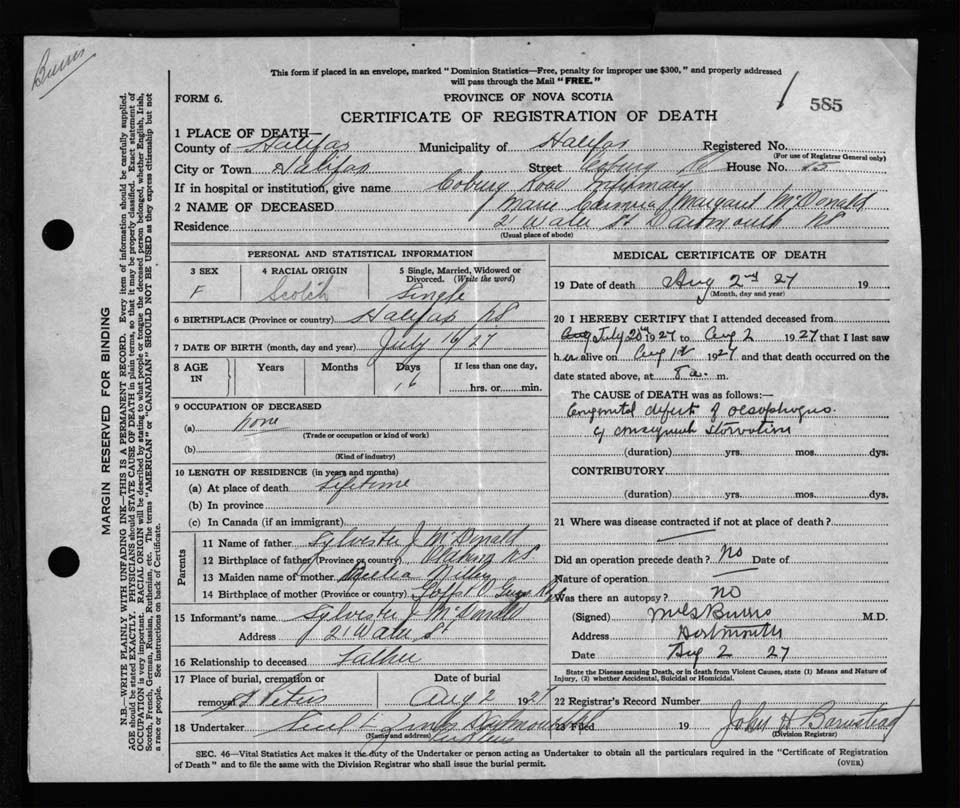 Burns
This form if placed in an envelope, marked "Dominion Statistics—Free, penalty for improper use $300," and properly addressed
will pass through the Mail "FREE."
585
FORM 6.
PROVINCE OF NOVA SCOTIA
CERTIFICATE OF REGISTRATION OF DEATH
1 PLACE OF DEATH—
County of Halifax Municipality of Halifax Registered No.
(For use of Registrar General only)
City or Town Halifax Street Coburg Rd House No. 15
If in hospital or institution, give name Coburg Road Infirmary
2 NAME OF DECEASED Marie Margaret McDonald
Residence 21 Water St Dartmouth NS
(Usual place of abode)
PERSONAL AND STATISTICAL INFORMATION
3 SEX 4 RACIAL ORIGIN 5 Single, Married, Widowed or
Divorced. (Write the word)
F Scotch Single
6 BIRTHPLACE (Province or country) Halifax NS
7 DATE OF BIRTH (month, day and year) July 16/27
8 AGE Years Months Days If less than one day,
IN 16 hrs. or min.
9 OCCUPATION OF DECEASED
(a) none
(Trade or occupation or kind of work)
(b)
(Kind of industry)
10 LENGTH OF RESIDENCE (in years and months)
(a) At place of death Lifetime
(b) In province
(c) In Canada (if an immigrant)
Parents
11 Name of father Sylvester J McDonald
12 Birthplace of father (Province or country) NS
13 Maiden name of mother
14 Birthplace of mother (Province or country)
15 Informant's name Sylvester J McDonald
Address 21 Water St
16 Relationship to deceased Father
17 Place of burial, cremation or Date of burial
removal St Peters Aug 2 1927
18 Undertaker
(Name and address)
MEDICAL CERTIFICATE OF DEATH
19 Date of death Aug 2nd 27 19
(Month, day and year)
20 I HEREBY CERTIFY that I attended deceased from
July 20th 1927 to Aug 2 1927 that I last saw
her alive on Aug 1st 1927 and that death occurred on the
date stated above, at 8 a. m.
The CAUSE of DEATH was as follows:—
Congenital defect of oesophagus
& consequent starvation
(duration) yrs. mos. dys.
CONTRIBUTORY
(duration) yrs. mos. dys.
21 Where was disease contracted if not at place of death?
Did an operation precede death? No Date of
Nature of operation
Was there an autopsy? NO
(Signed) Burris M.D.
Address Dartmouth
Date Aug 2 27
State the Disease causing Death, or in death from Violent Causes, state (1) Means and Nature of
Injury, (2) whether Accidental, Suicidal or Homicidal.
22 Registrar's Record Number
23 Filed 19 John H Barnstead
(Division Registrar)
SEC. 46—Vital Statistics Act makes it the duty of the Undertaker or person acting as Undertaker to obtain all the particulars required in the "Certificate of Registration
of Death" and to file the same with the Division Registrar who shall issue the burial permit.
(OVER)
MARGIN RESERVED FOR BINDING
N.B.—WRITE PLAINLY WITH UNFADING INK—THIS IS A PERMANENT RECORD. Every item of information should be carefully supplied.
AGE should be stated EXACTLY. PHYSICIANS should STATE CAUSE OF DEATH in plain terms, so that it may be properly classified. Exact statement of
OCCUPATION is very important. RACIAL ORIGIN will be described by stating to what people or tongue the deceased person belonged, whether English, Irish,
Scotch, French, German, Russian, Ruthenian, etc. The terms "AMERICAN" or "CANADIAN" SHOULD NOT BE USED as they express citizenship but not
a race or people. See instructions on back of Certificate.